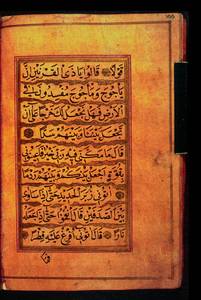 قولا قالوا يا ذا القرنين ان
ياجوج وماجوج مفسدون فى
الارض فهل نجعل لك خرجا على ان
تجعل بيننا وبينهم سدا
قال ما مكنى فيه ربى خير فاعينونى
بقوة اجعل بينكم وبينهم ردما
اتونى زبر الحديد حتى اذا ساوى
بين الصدفين قال انفخوا حتى اذا جعله
نارا قال اتونى افرغ عليه قطرا